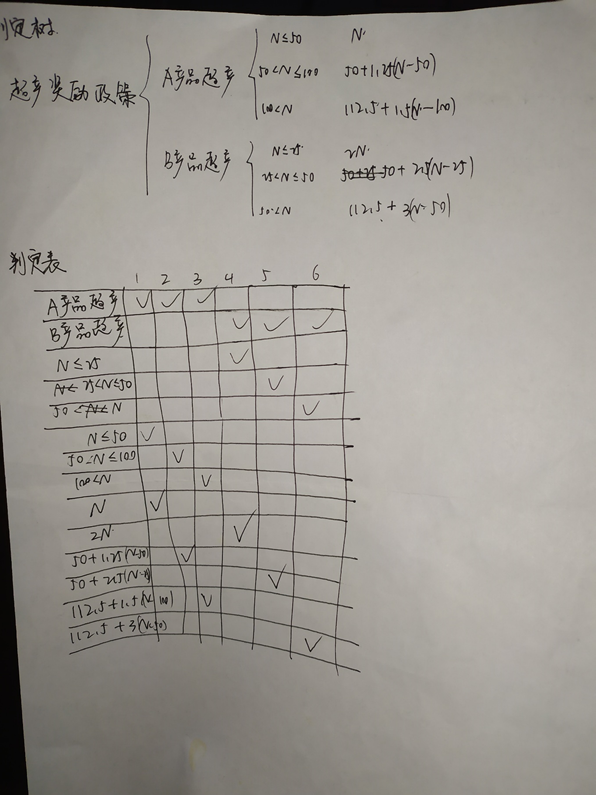 判定树
超产奖励政策
A产品超产
N≤50 N
50<N≤100 50+1.25(N-50)
100<N 112.5+1.5(N-100)
B产品超产
N≤25 2N
25<N≤50 50+2.5(N-25)
50<N 112.5+3(N-50)
判定表
1 2 3 4 5 6
A产品超产 ✓ ✓ ✓
B产品超产 ✓ ✓ ✓
N≤25 ✓
25<N≤50 ✓
50<N ✓
N≤50 ✓
50<N≤100 ✓
100<N ✓
N ✓
2N ✓
50+1.25(N-50) ✓
50+2.5(N-25) ✓
112.5+1.5(N-100) ✓
112.5+3(N-50) ✓